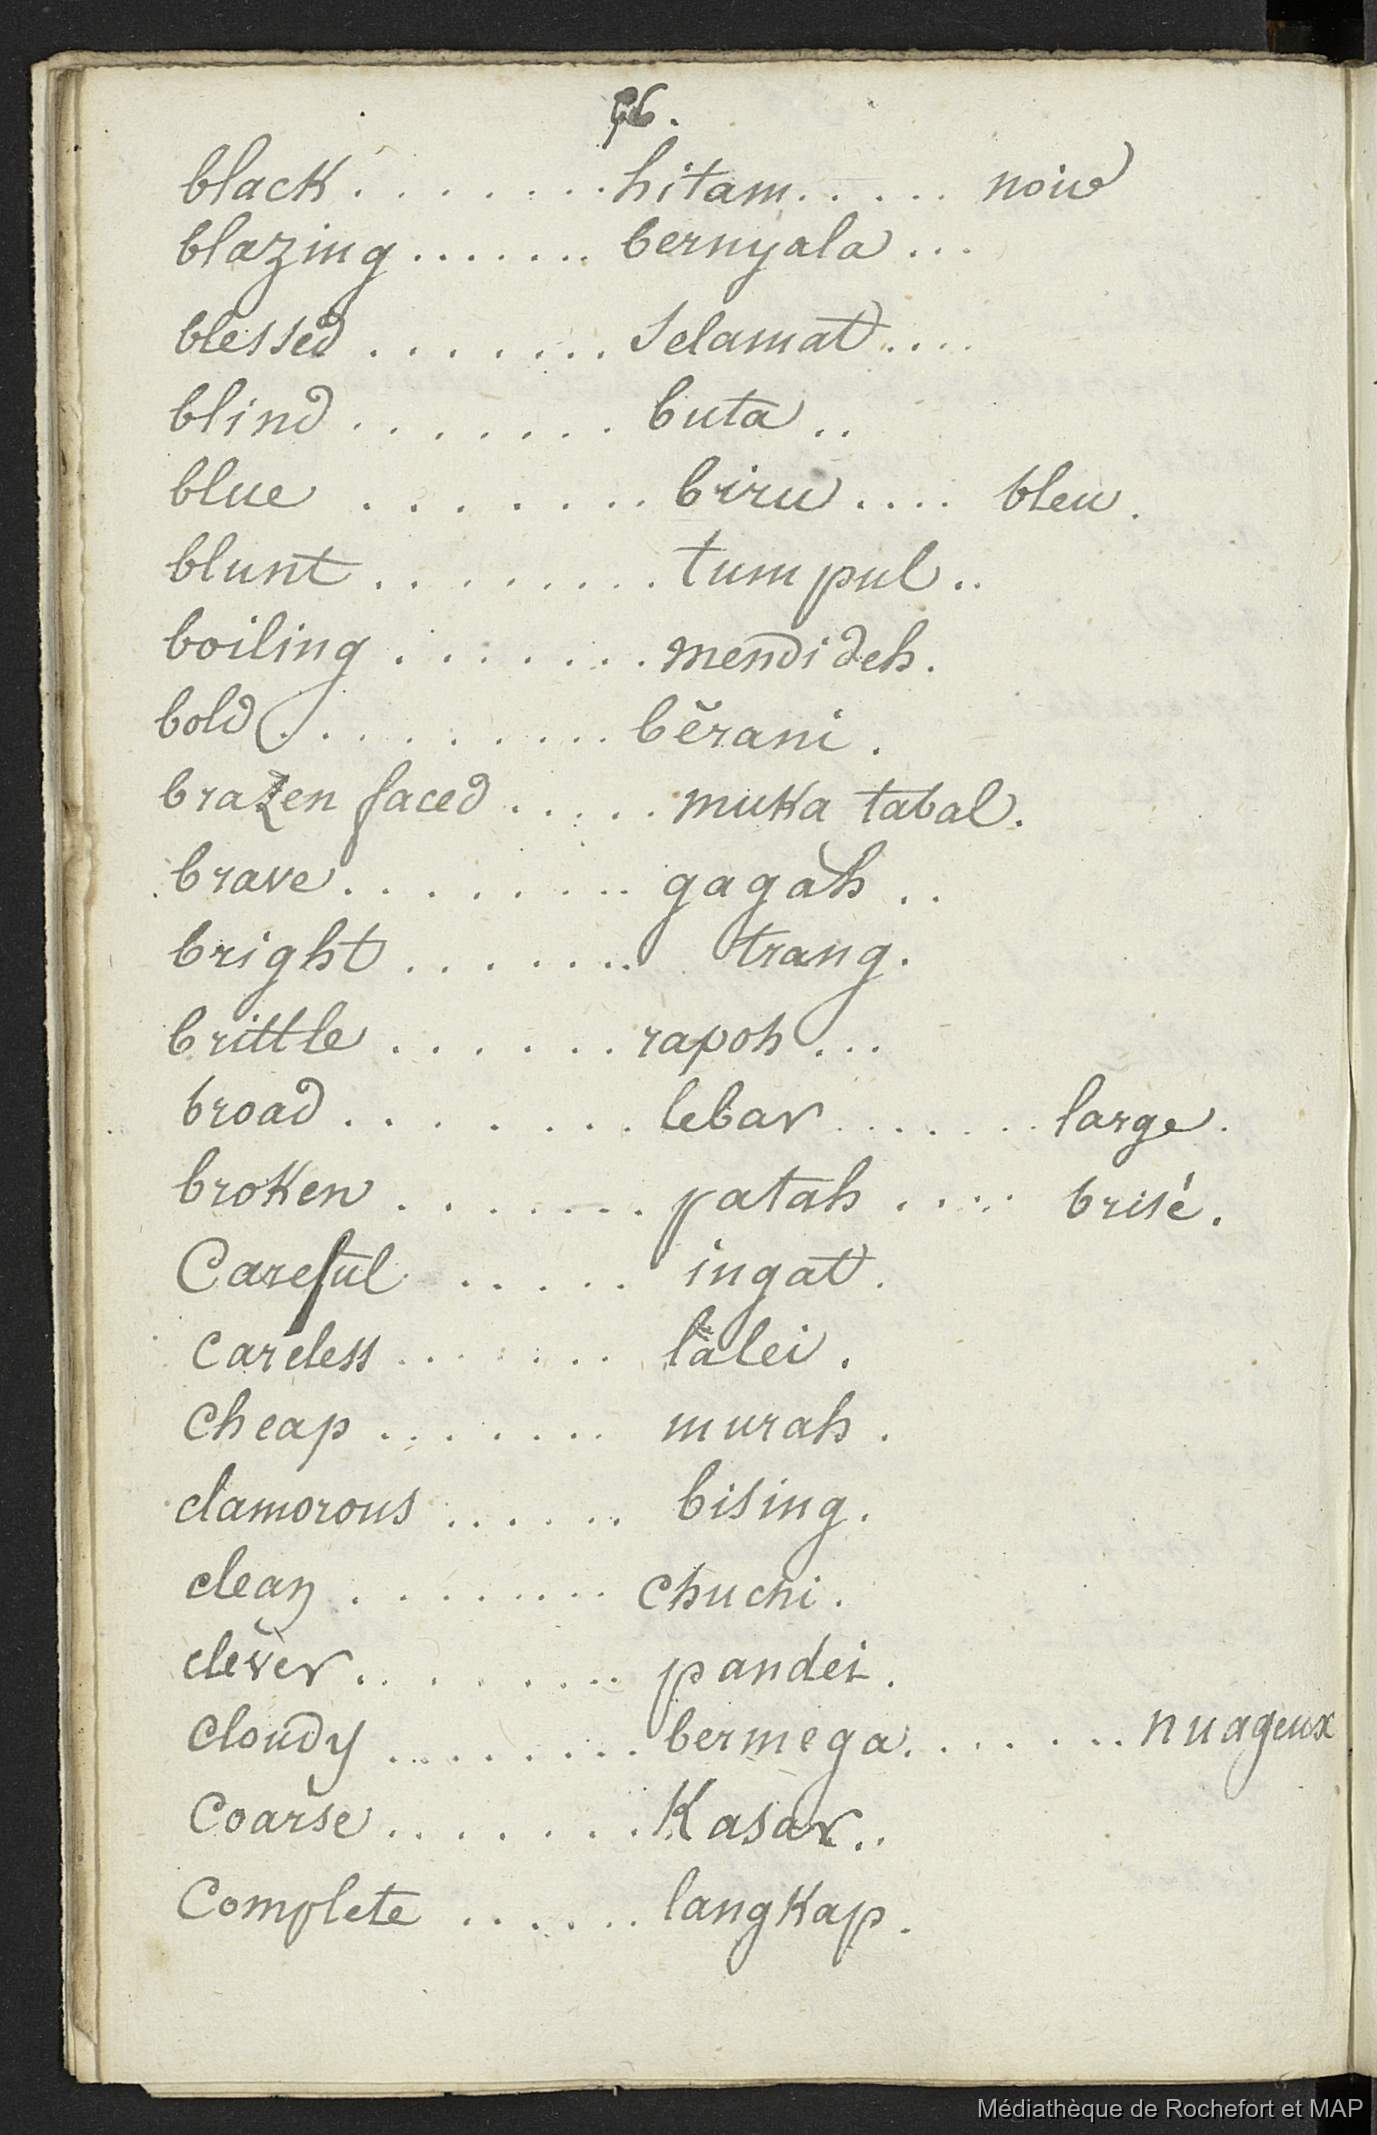 96.
black ........ hitam ...... noir
blazing ....... bernyala ...
blessed ....... Selamat ....
blind ....... buta ..
blue ....... biru .... bleu.
blunt ........ tumpul ..
boiling ....... mendideh.
bold ......... bĕrani .
brazen faced ..... muka tabal.
brave ........ gagah ..
bright ....... trang.
brittle ...... rapoh ...
broad ....... lebar ...... large.
broken ....... patah .... brisé.
Careful ..... ingat .
careless ....... lalei .
cheap ....... murah .
clamorous ...... bising .
clean ........ chuchi .
clever ........ pandei .
cloudy ........ bermega ....... nuageux
Coarse ....... Kasar ..
Complete ...... langkap .
Médiathèque de Rochefort et MAP